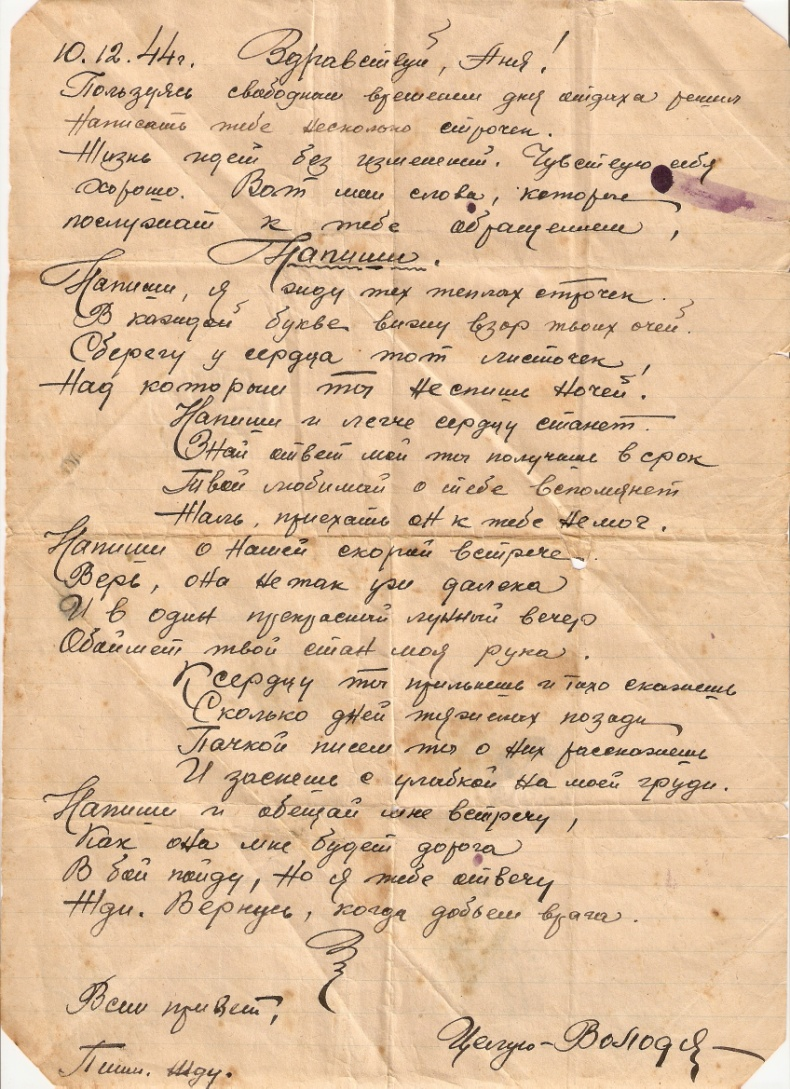 10.12.44г. Здравствуй, Аня!
Пользуясь свободным временем дня отдыха решил
написать тебе несколько строчек.
Жизнь идет без изменений. Чувствую себя
хорошо. Вот мои слова, которые
послужат к тебе обращением,
Напиши.
Напиши, я жду тех теплых строчек.
В каждой букве вижу взор твоих очей.
Сберегу у сердца тот листочек,
Над которым ты не спишь ночей.
Напиши и легче сердцу станет.
Знай ответ мой ты получишь в срок
Твой любимый о тебе вспомянет
Жаль, приехать он к тебе не мог.
Напиши о нашей скорой встрече
Верь, она не так уж далека
И в один прекрасный лунный вечер
Обоймет твой стан моя рука.
К сердцу ты прильнешь и тихо скажешь
Сколько дней тяжелых позади
Пачкой писем ты о них расскажешь
И заснешь с улыбкой на моей груди.
Напиши и обещай мне встречу,
Как она мне будет дорога
В бой пойду, но я тебе отвечу
Жди. Вернусь, когда добьем врага.
Всем привет,
Целую - Володя
Пиши. Жду.